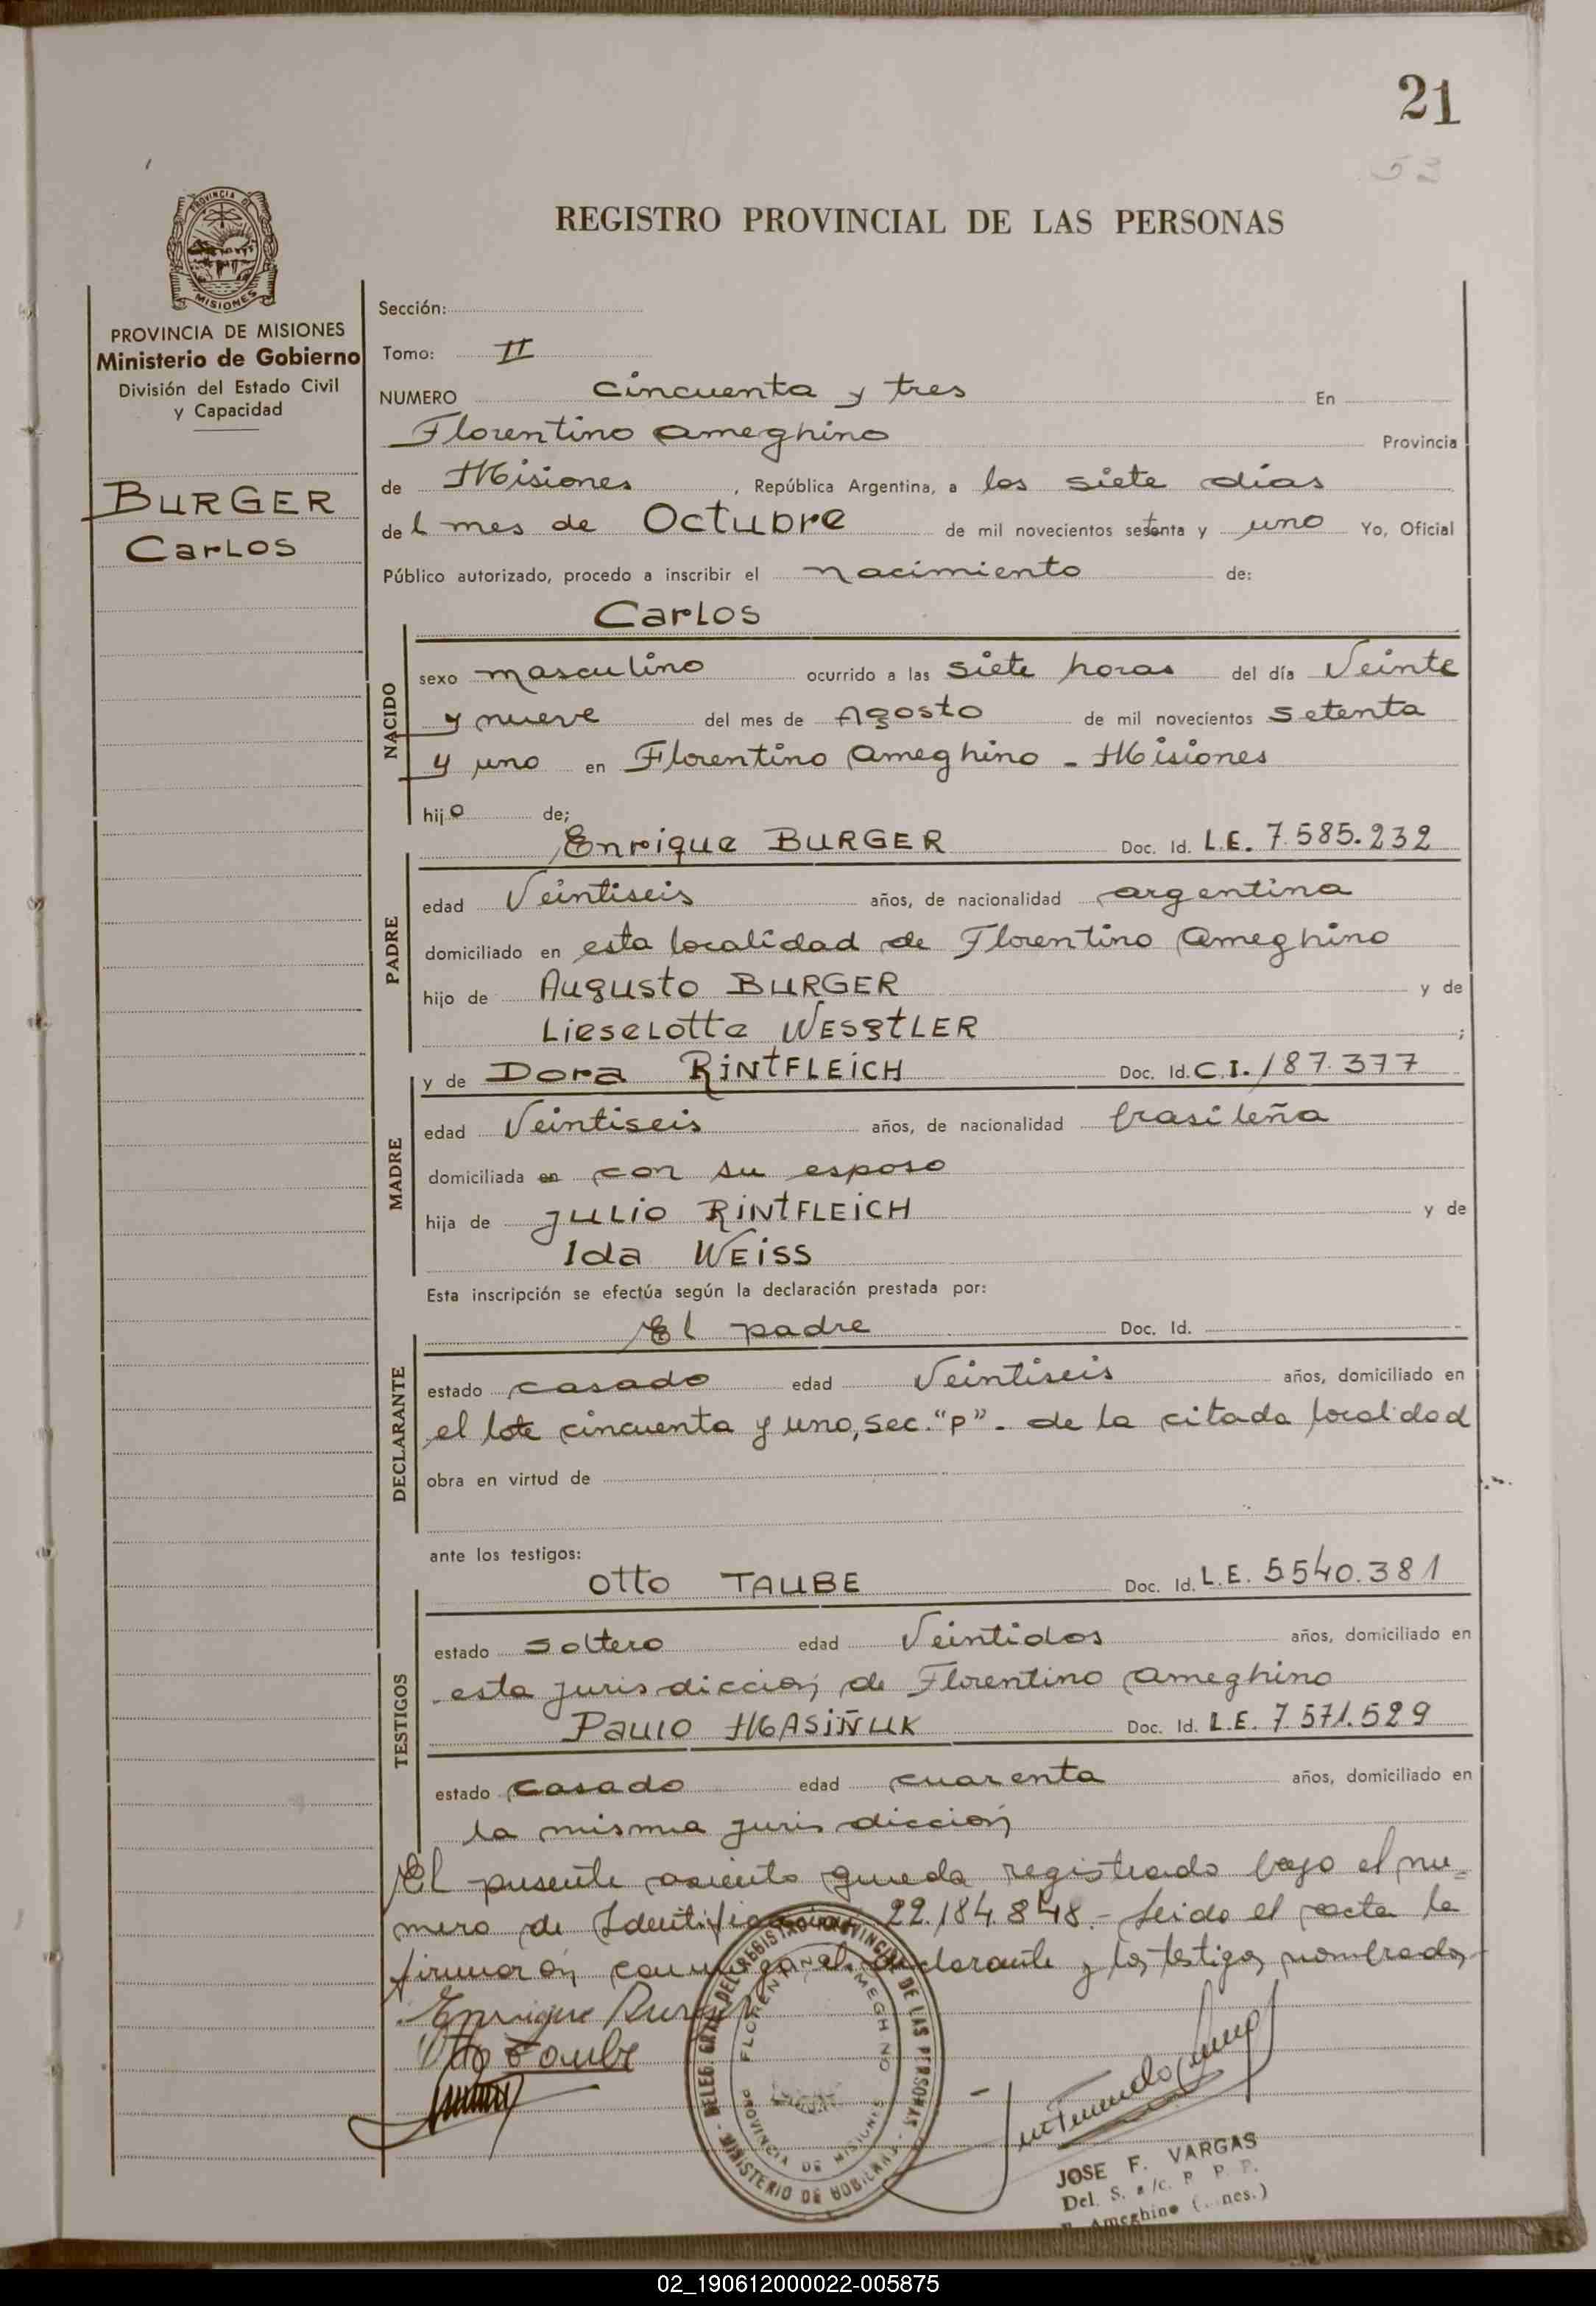 21
53
PROVINCIA DE
MISIONES
REGISTRO PROVINCIAL DE LAS PERSONAS
PROVINCIA DE MISIONES
Ministerio de Gobierno
División del Estado Civil
y Capacidad
BURGER
Carlos
Sección:
Tomo: II
NUMERO cincuenta y tres En
Florentino Ameghino Provincia
de Misiones, República Argentina, a los siete días
del mes de Octubre de mil novecientos setenta y uno Yo, Oficial
Público autorizado, procedo a inscribir el nacimiento de:
Carlos
NACIDO
sexo masculino ocurrido a las siete horas del día Veinte
y nueve del mes de Agosto de mil novecientos setenta
y uno en Florentino Ameghino - Misiones
hijo de;
Enrique BURGER Doc. Id. L.E. 7.585.232
PADRE
edad Veintiseis años, de nacionalidad argentina
domiciliado en esta localidad de Florentino Ameghino
hijo de Augusto BURGER y de
Lieselotte WESStLER;
y de Dora RiNtFLEiCH Doc. Id. C.I. 187.377
MADRE
edad Veintiseis años, de nacionalidad brasileña
domiciliada en con su esposo
hija de Julio RiNtFLEiCH y de
Ida WEiSS
Esta inscripción se efectúa según la declaración prestada por:
El padre Doc. Id.
DECLARANTE
estado casado edad Veintiseis años, domiciliado en
el lote cincuenta y uno, sec. "P". de la citada localidad
obra en virtud de
ante los testigos:
Otto TAUBE Doc. Id. L.E. 5.540.381
TESTIGOS
estado soltero edad Veintidos años, domiciliado en
esta jurisdicción, de Florentino Ameghino
Paulo MASiÑUK Doc. Id. L.E. 7.571.529
estado casado edad cuarenta años, domiciliado en
la misma jurisdicción
El presente asiento queda registrado bajo el nu=
mero de Identificacion 22.184.848.- Leido el acta la
firmarón conmigo el declarante y los testigos nombrados
Enrique Burger
Otto Taube
DELEG. GRAL. DEL REGISTRO PROVINCIAL DE LAS PERSONAS - MINISTERIO DE GOBIERNO
FLORENTINO AMEGHINO
PROVINCIA DE MISIONES
JOSE F. VARGAS
Del. S. a/c. R. P. P.
F. Ameghino (nes.)
02_190612000022-005875